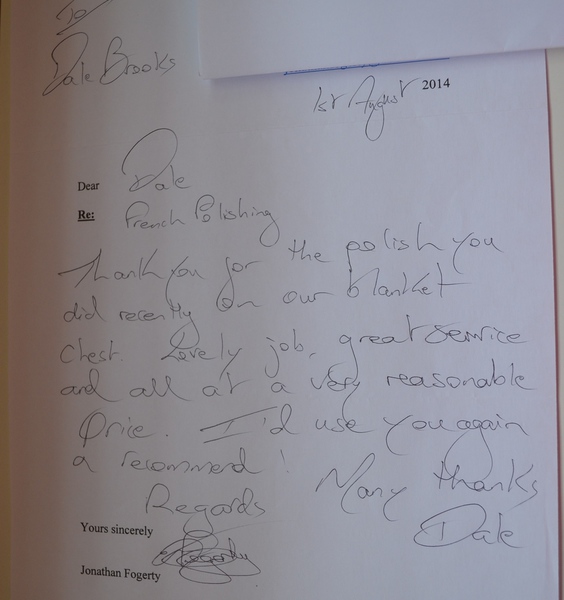 To
Dale Brooks
1st August 2014
Dear Dale
Re: French Polishing
Thank you for the polish you
did recently on our blanket
chest. Lovely job, great service
and all at a very reasonable
price. I'd use you again
a recommend!
Many thanks
Regards
Dale
Yours sincerely
Fogerty
Jonathan Fogerty